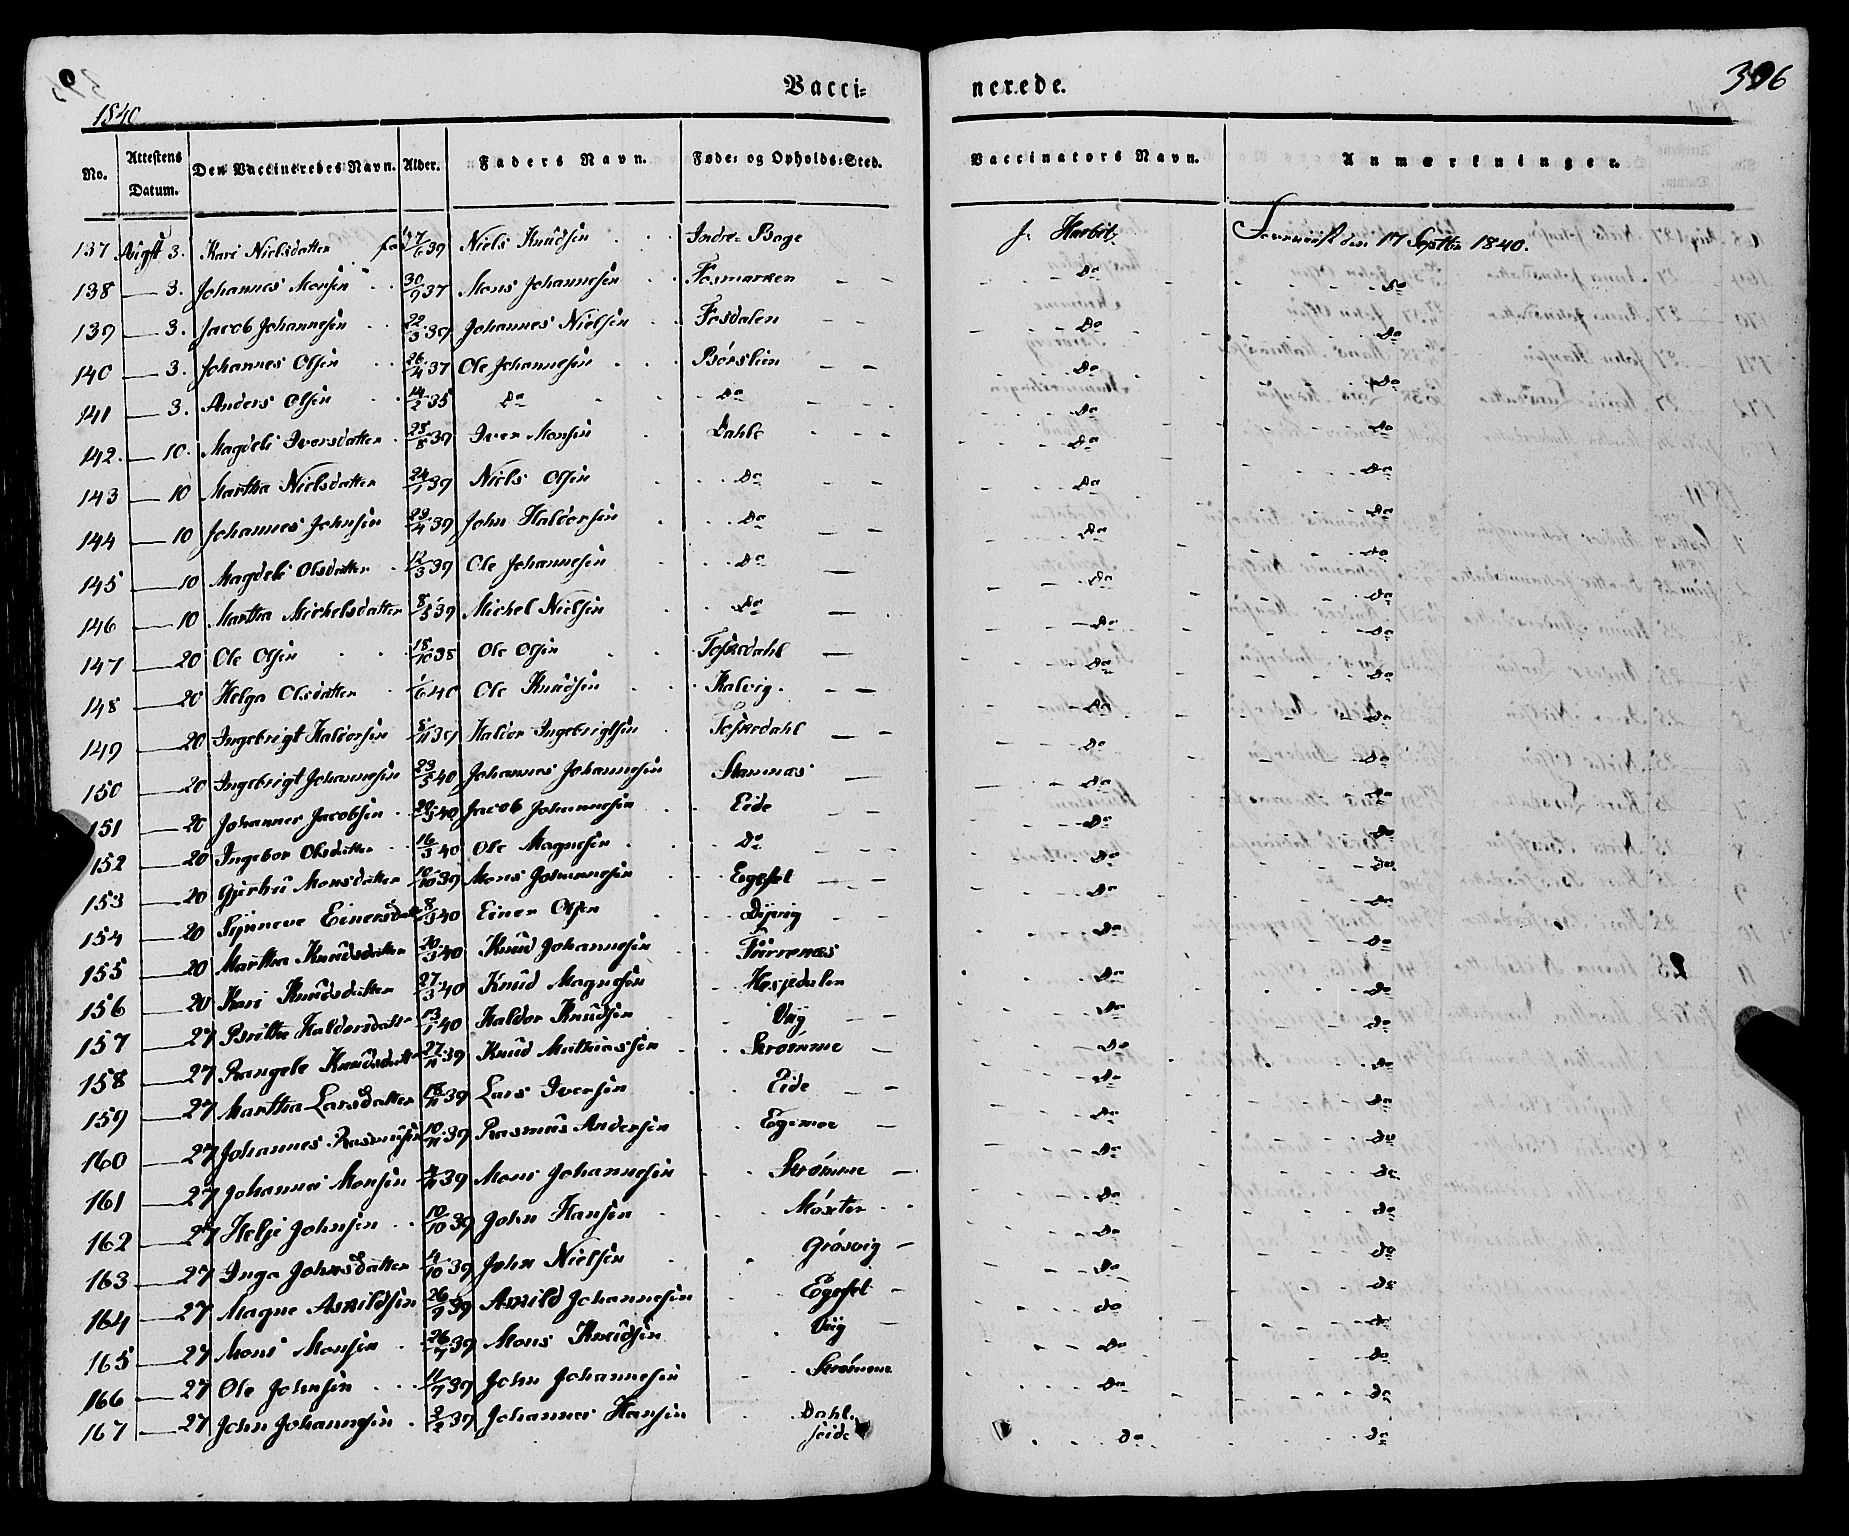 Vacci- nerede.
396
1840
No. Attestens Datum. Den Vaccineredes Navn. Alder. Faders Navn. Føde- og Opholds-Sted. Vaccinators Navn. Anmærkninger.
137 Augst 3. Kari Nielsdatter fød 17/6 39 Niels Knudsen Indre Boge J. Herbst Foreviist den 17 Septbr 1840.
138 — 3. Johannes Monsen 30/9 37 Mons Johannesen Fosmarken do do
139 — 3. Jacob Johannesen 22/3 39 Johannes Nielsen Fosdalen do do
140 — 3. Johannes Olsen 26/4 37 Ole Johannesen Børslien do do
141 — 3. Anders Olsen 14/2 35 do do do do
142. — 10. Magdeli Iversdatter 28/8 39 Iver Monsen Dahle do do
143 — 10 Martha Nielsdatter 24/1 39 Niels Olsen do do do
144 — 10 Johannes Johnsen 29/4 39 John Haldorsen do do do
145 — 10 Magdeli Olsdatter 12/3 39 Ole Johannesen do do do
146 — 10 Martha Michelsdatter 8/5 39 Michel Nielsen do do do
147 — 20 Ole Olsen 18/10 38 Ole Olsen Toskedahl do do
148 — 20 Helga Olsdatter 1/6 40 Ole Knudsen Kalvig do do
149 — 20 Ingebrigt Haldorsen 8/11 39 Haldor Ingebrigtsen Toskedahl do do
150 — 20 Ingebrigt Johannesen 23/5 40 Johannes Johannesen Stamnæs do do
151 — 20 Johannes Jacobsen 20/3 40 Jacob Johannesen Eide do do
152 — 20 Ingebor Olsdatter 16/3 40 Ole Magnesen do do do
153 — 20 Gjørtru Monsdatter 10/10 39 Mons Johannesen Egeset do do
154 — 20 Synneve Einersdatter 8/3 40 Einer Olsen Dyvig do do
155 — 20 Martha Knudsdatter 20/3 40 Knud Johannesen Furrenæs do do
156 — 20 Kari Knudsdatter 27/3 40 Knud Magnesen Hesjedalen do do
157 — 27 Brithe Haldorsdatter 13/1 40 Haldor Knudsen Viig do do
158 — 27 Rangele Knudsdatter 27/11 39 Knud Mathiassen Strømme do do
159 — 27 Martha Larsdatter 18/11 39 Lars Iversen Eide do do
160 — 27 Johannes Rasmusen 10/11 39 Rasmus Andersen Egemoe do do
161 — 27 Johannes Monsen 39 Mons Johannesen Strømme do do
162 — 27 Helje Johnsen 10/10 39 John Hansen Møxter do do
163 — 27 Inga Johnsdatter 4/10 39 John Nielsen Grøsvig do do
164 — 27 Magne Asvildsen 26/9 39 Asvild Johannesen Egeset do do
165 — 27 Mons Monsen 26/7 39 Mons Knudsen Viig do do
166 — 27 Ole Johnsen 11/7 39 John Johannesen Strømme do do
167 — 27 John Johannesen 2/2 39 Johannes Hansen Dahl- seide do do